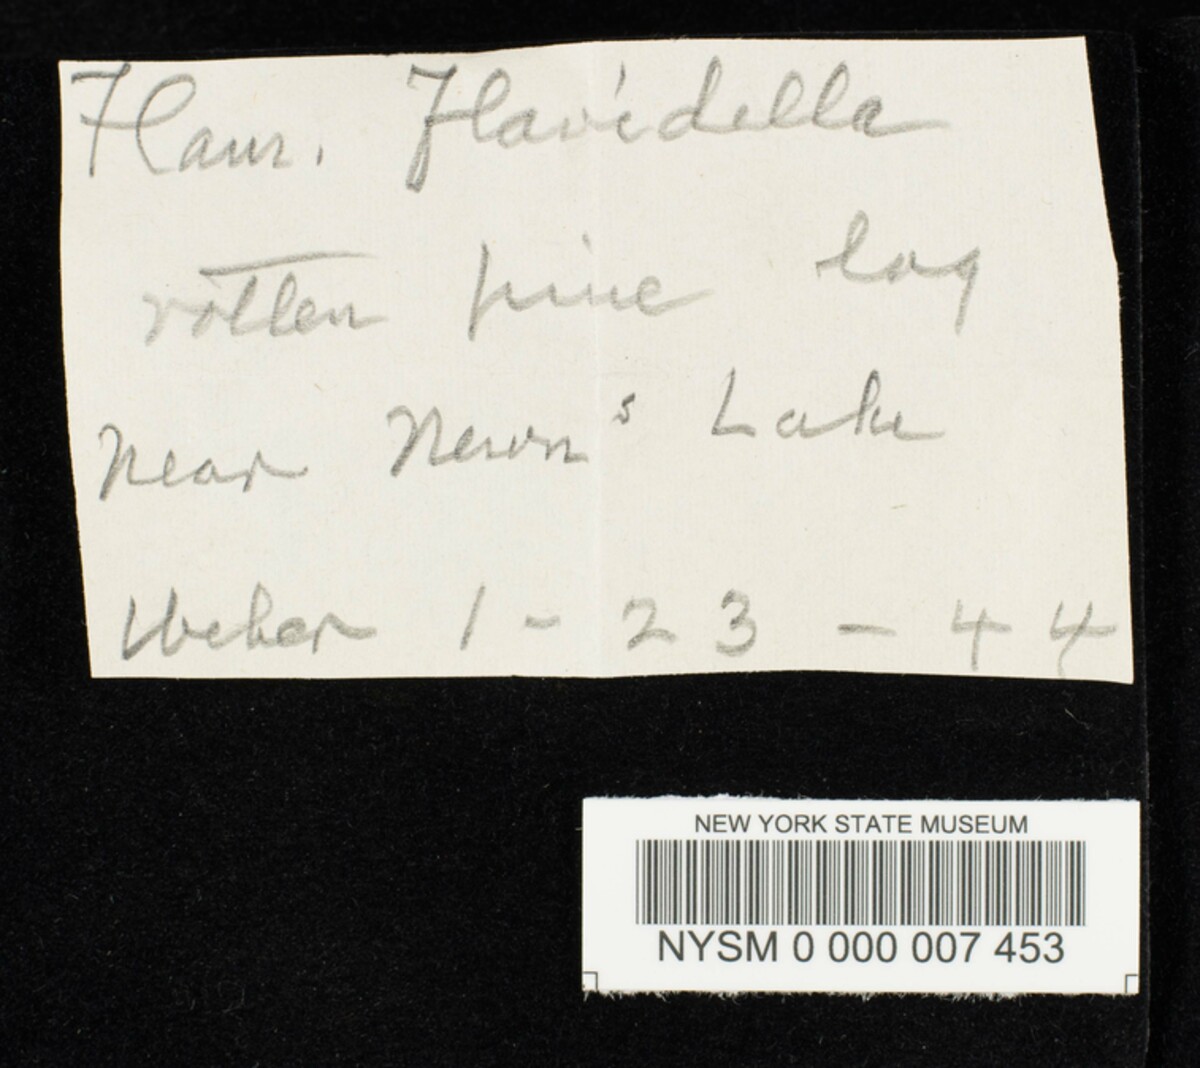 Flam. Flavidella
rotten pine log
near Newn's Lake
Weber 1-23-44
NEW YORK STATE MUSEUM
NYSM 0 000 007 453